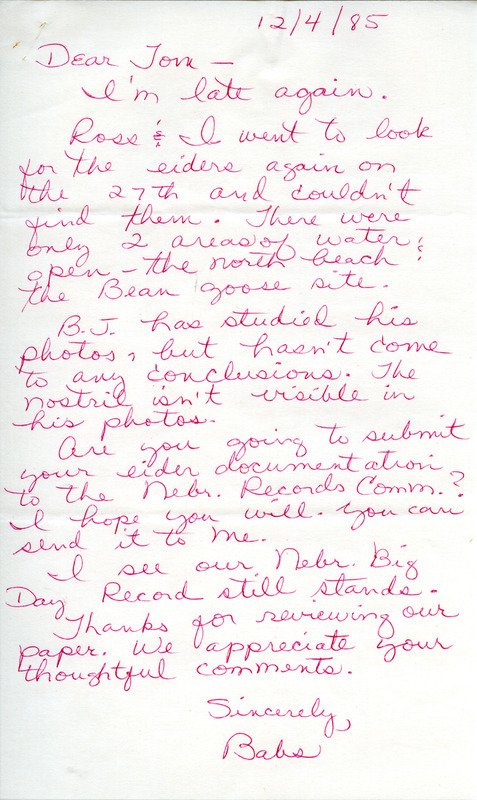 12/4/85
Dear Tom —
I'm late again.
Ross & I went to look
for the eiders again on
the 27th and couldn't
find them. There were
only 2 areas of water
open – the north beach &
the Bean goose site.
B.J. has studied his
photos, but hasn't come
to any conclusions. The
nostril isn't visible in
his photos.
Are you going to submit
your eider documentation
to the Nebr. Records Comm.?
I hope you will. You can
send it to me.
I see our Nebr. Big
Day Record still stands.
Thanks for reviewing our
paper. We appreciate your
thoughtful comments.
Sincerely,
Babs